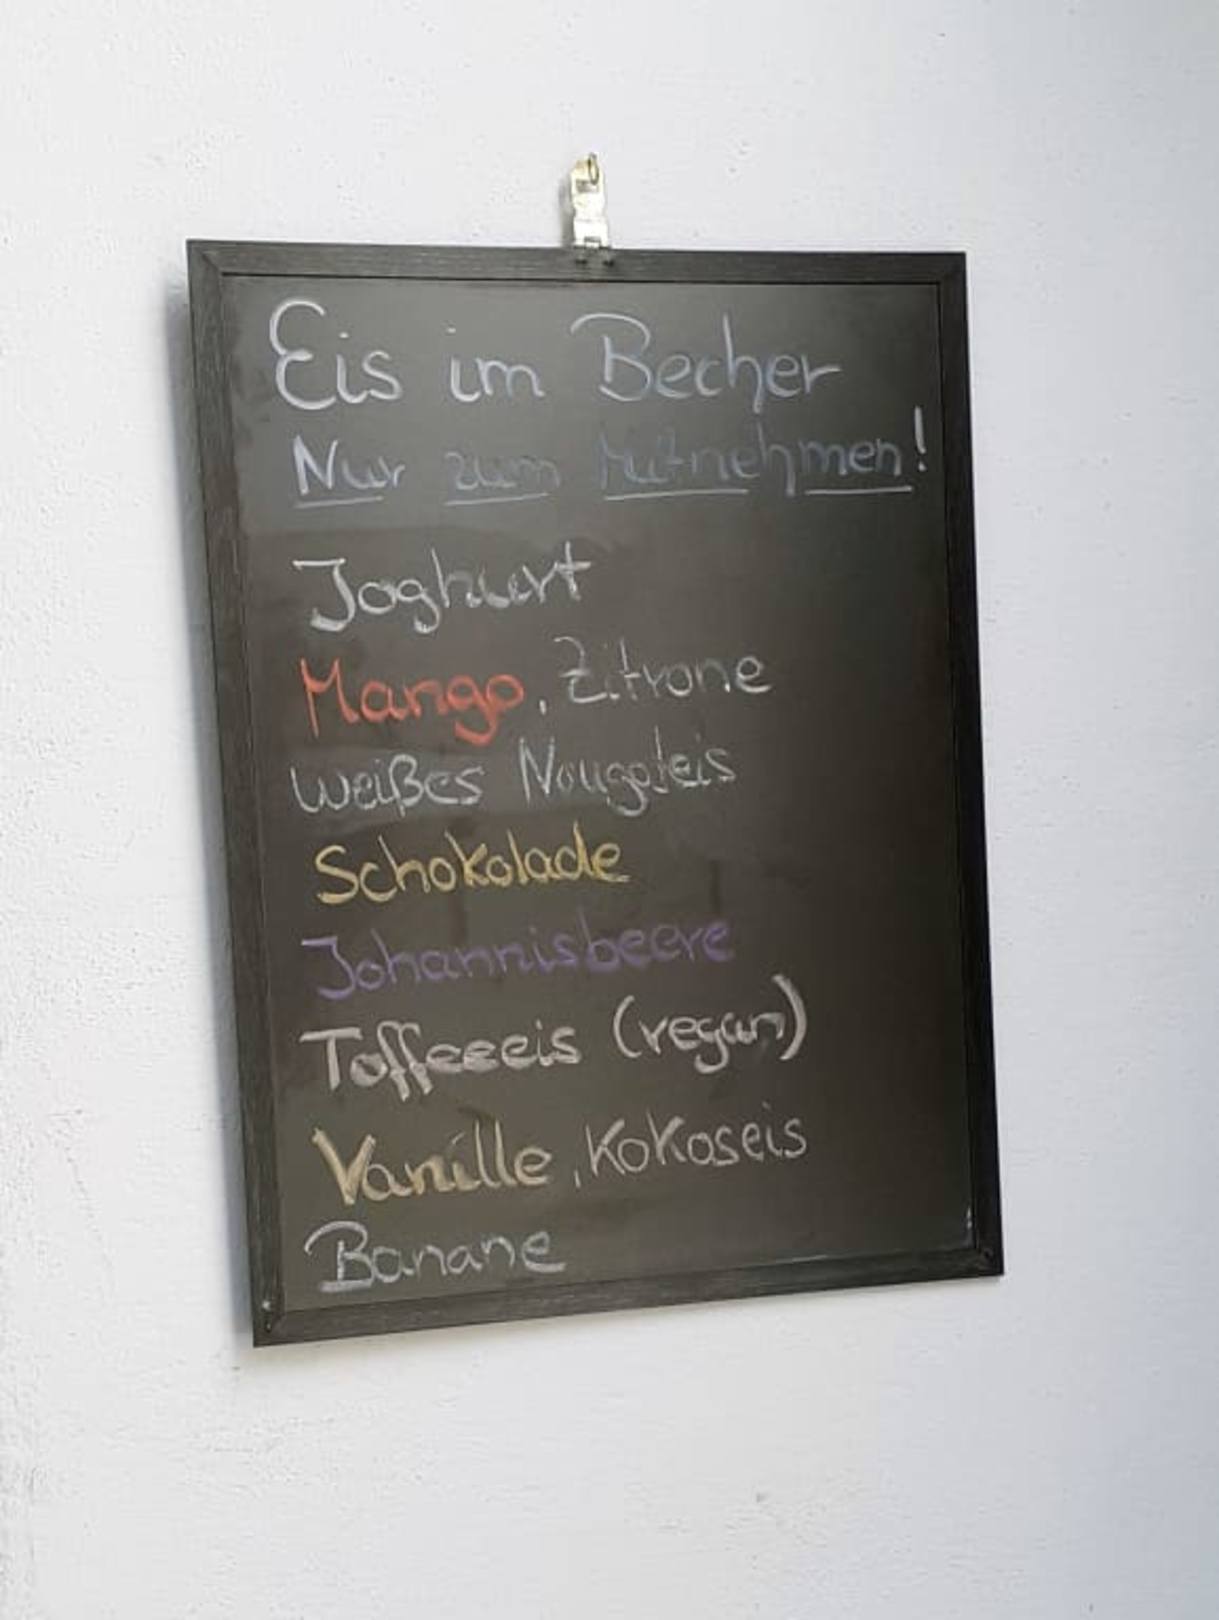 Eis im Becher
Nur zum Mitnehmen!
Joghurt
Mango, Zitrone
weißes Nougateis
Schokolade
Johannisbeere
Toffeeeis (vegan)
Vanille, Kokoseis
Banane